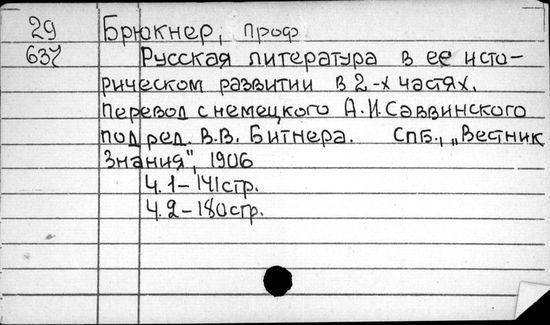 29 Брюкнер, проф
637 Русская литература в ее исто-
рическом развитии в 2-х частях.
Перевод с немецкого А.И. Саввинского
под ред. В.В. Битнера. СПБ., „Вестник
Знания", 1906
Ч. 1 – 141 стр.
Ч. 2 – 180 стр.